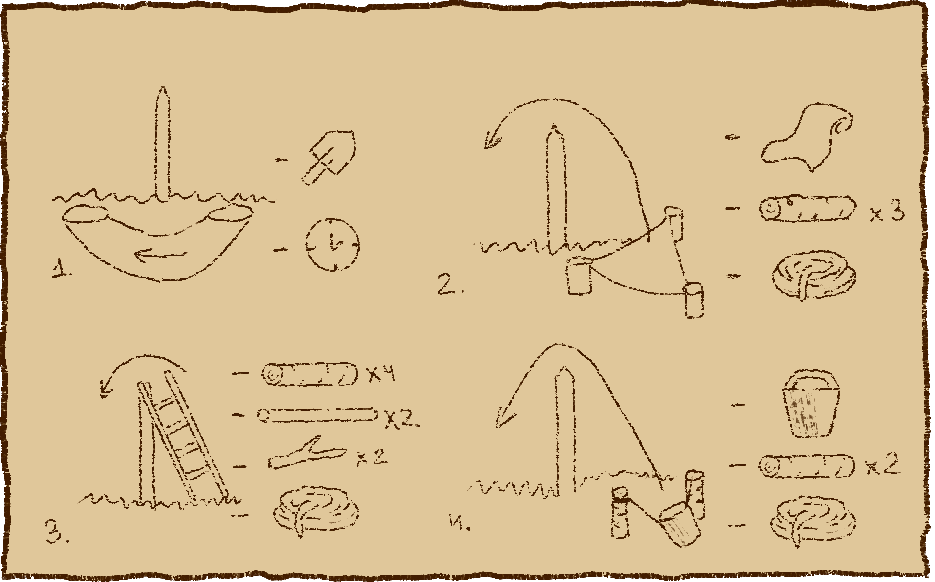 1.
2.
x3
3.
x4
x2.
x2
4.
x2